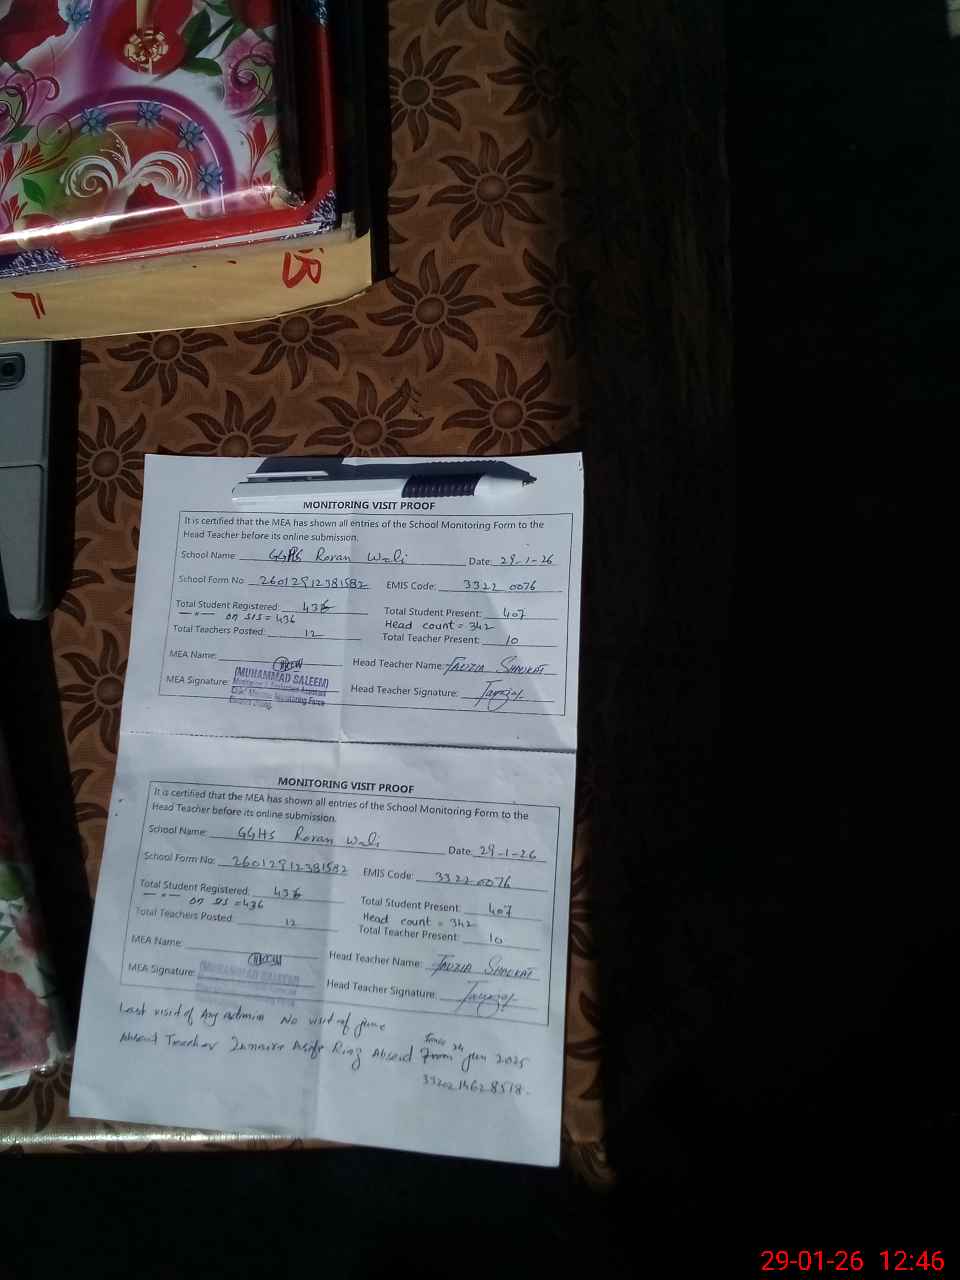 MONITORING VISIT PROOF
It is certified that the MEA has shown all entries of the School Monitoring Form to the
Head Teacher before its online submission.
School Name: GGHS Roran Wali Date: 29-1-26
School Form No: 26012912381582 EMIS Code: 33220076
Total Student Registered: 436 Total Student Present: 407
on SIS = 436 Head count = 342
Total Teachers Posted: 12 Total Teacher Present: 10
MEA Name: Head Teacher Name: FAUZIA SHAUKAT
MEA Signature: Head Teacher Signature:
(MUHAMMAD SALEEM)
Monitoring Force
MONITORING VISIT PROOF
It is certified that the MEA has shown all entries of the School Monitoring Form to the
Head Teacher before its online submission.
School Name: GGHS Roran Wali Date: 29-1-26
School Form No: 26012912381582 EMIS Code: 33220076
Total Student Registered: 436 Total Student Present: 407
on SIS = 436 Head count = 342
Total Teachers Posted: 12 Total Teacher Present: 10
MEA Name: Head Teacher Name: FAUZIA SHAUKAT
MEA Signature: Head Teacher Signature:
MUHAMMAD SALEEM
Last visit of Any admin No visit of June
Absent Teacher Absent From Jun 2025
29-01-26 12:46